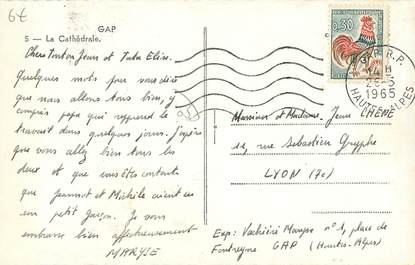 6€
GAP
5 - La Cathédrale.
Chers tonton Jean et Tata Elise.
Quelques mots pour vous dire
que nous allons tous bien, y
compris papa qui reprend le
travail dans quelques jours. J'espère
que vous allez bien tous les
deux et que vous êtes contents
que Jeannot et Michèle aient eu
un petit garçon. Je vous
embrasse bien affectueusement
MARYSE
0,30
GAP R.P.
14 H
1965
HAUTES-ALPES
Monsieur et Madame Jean CHENE
12, rue Sébastien Gryphe
LYON (7e)
Exp: Maryse n° 1, place de
GAP (Hautes-Alpes)